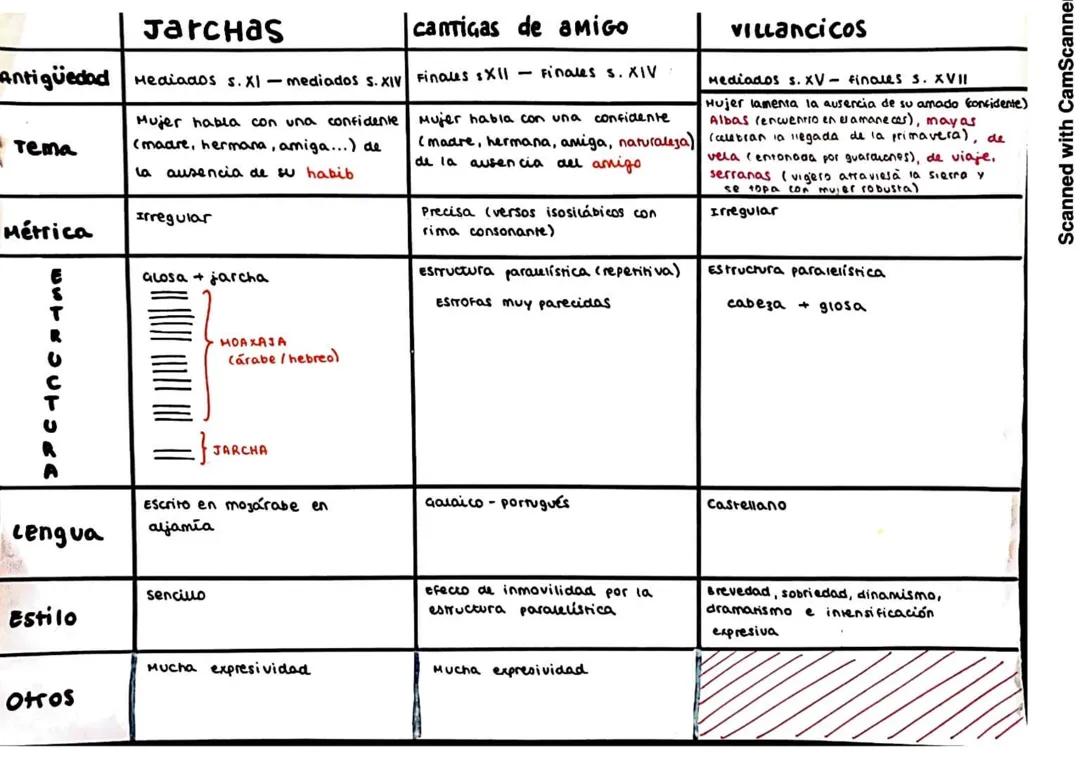 Jarchas
cantigas de amigo
villancicos
Antigüedad
Mediados s. XI — mediados s. XIV
Finales sXII — Finales s. XIV
Mediados s. XV — finales s. XVII
Tema
Mujer habla con una confidente
(madre, hermana, amiga...) de
la ausencia de su habib
Mujer habla con una confidente
(madre, hermana, amiga, naturaleza)
de la ausencia del amigo
Mujer lamenta la ausencia de su amado (confidente)
Albas (encuentro en el amanecer), mayas
(celebran la llegada de la primavera), de
vela (entonada por guardianes), de viaje,
serranas (viajero atraviesa la sierra y
se topa con mujer robusta)
Métrica
Irregular
Precisa (versos isosilábicos con
rima consonante)
Irregular
ESTRUCTURA
Glosa + jarcha
MOAXAJA
(árabe / hebreo)
JARCHA
Estructura paralelística (repetitiva)
Estrofas muy parecidas
Estructura paralelística
cabeza + glosa
Lengua
Escrito en mozárabe en
aljamía
Galaico - portugués
Castellano
Estilo
Sencillo
Efecto de inmovilidad por la
estructura paralelística
Brevedad, sobriedad, dinamismo,
dramatismo e intensificación
expresiva
Otros
Mucha expresividad
Mucha expresividad
Scanned with CamScanner